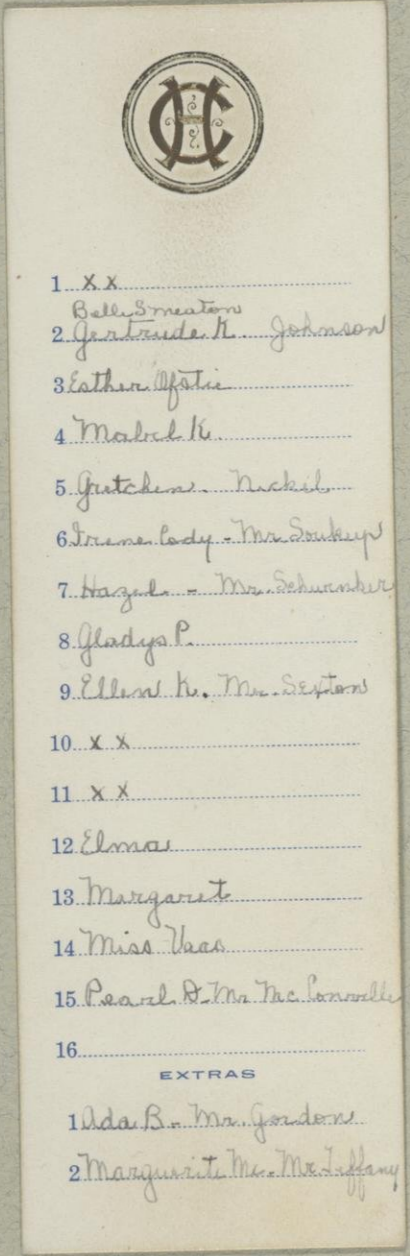 HC
1 x x
Belle Smeaton
2 Gertrude K. Johnson
3 Esther Ofstie
4 Mabel K.
5 Gretchen. Nickil.
6 Irene Cody - Mr Soukup
7 Hazel - Mr. Schurnker
8 Gladys P.
9 Ellen K. Mr. Sexton
10 x x
11 x x
12 Elma
13 Margaret
14 Miss Vaas
15 Pearl D - Mr Mc Conville
16
EXTRAS
1 Ada B. - Mr. Gordon
2 Marguerite Mc. - Mr. Tiffany